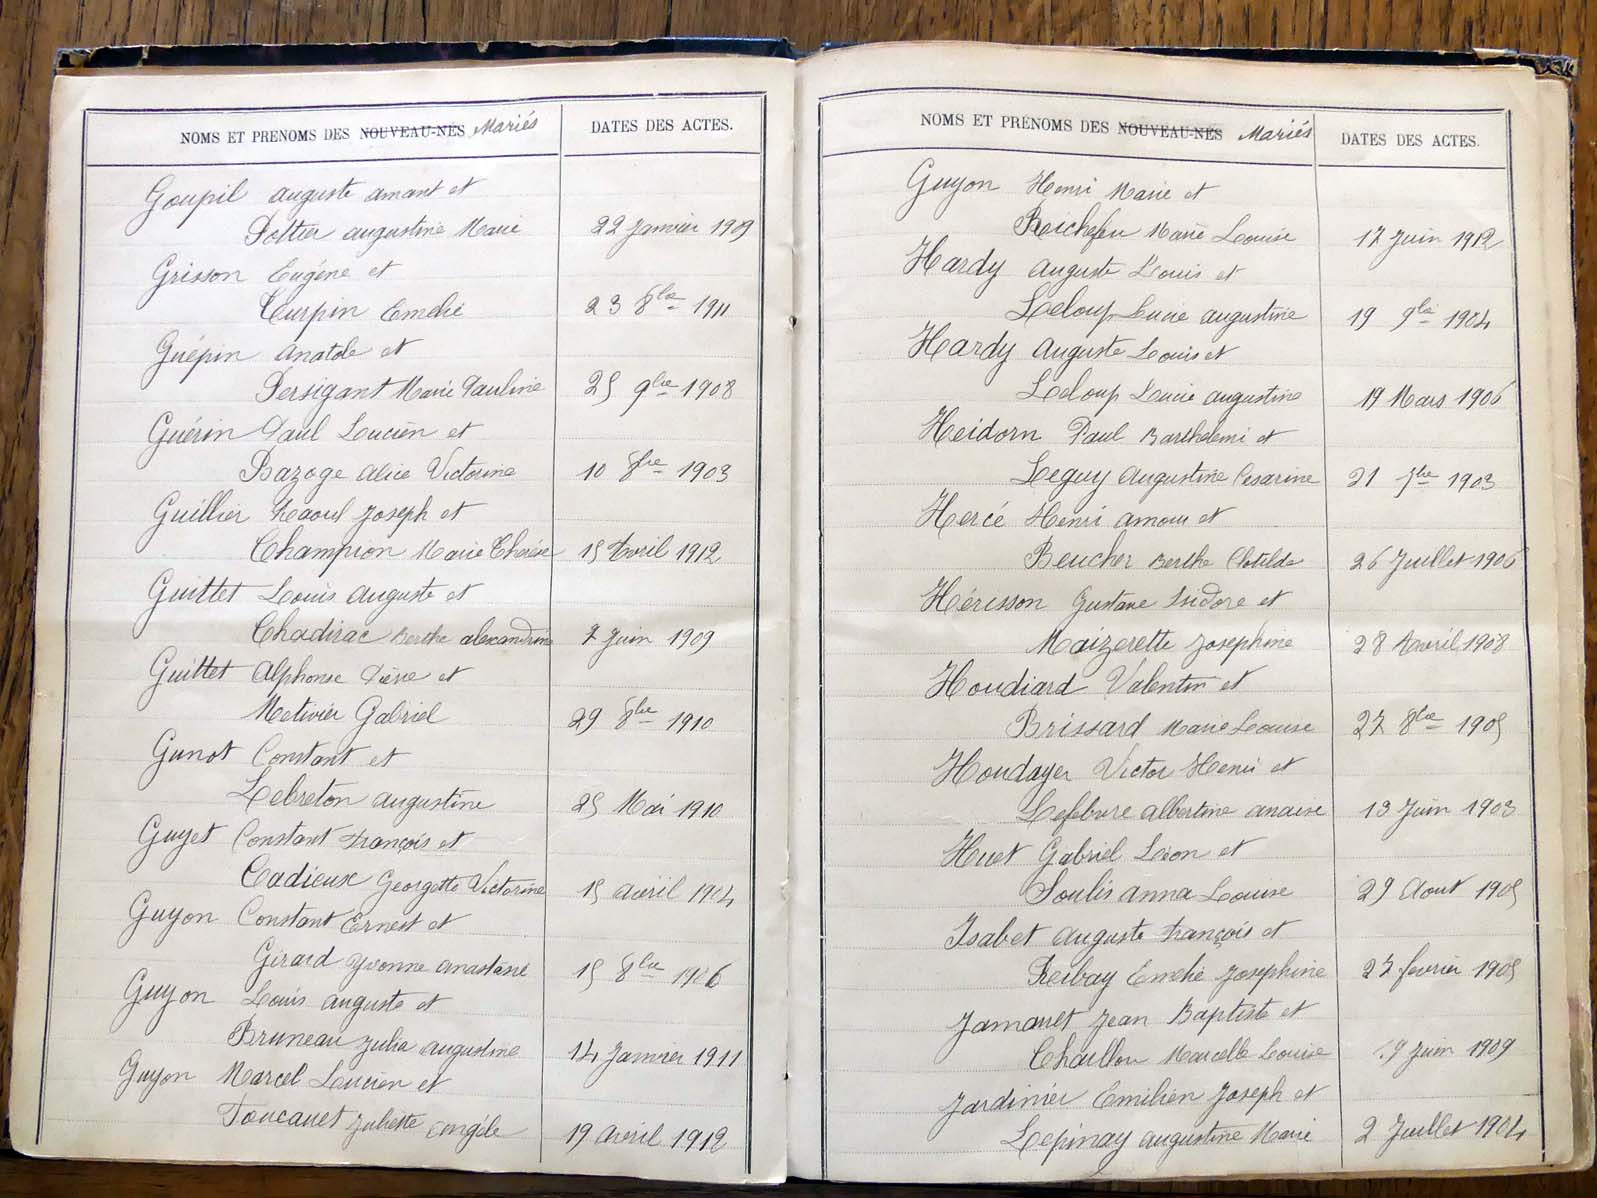 NOMS ET PRENOMS DES NOUVEAU-NÉS Mariés DATES DES ACTES.
Goupil auguste amant et
Pottier augustine Marie 22 Janvier 1909
Grisson Eugène et
Turpin Emelie 23 8bre 1911
Guépin anatole et
Persigant Marie Pauline 25 9bre 1908
Guérin Paul Lucien et
Bazoge alice Victorine 10 8bre 1903
Guillier Raoul Joseph et
Champion Marie Thérèse 15 Avril 1912
Guittet Louis auguste et
Chadirac Berthe alexandrine 7 Juin 1909
Guittet Alphonse Pierre et
Metivier Gabriel 29 8bre 1910
Gunot Constant et
Lebreton augustine 25 Mai 1910
Guyet Constant François et
Cadieux Georgette Victorine 15 avril 1904
Guyon Constant Ernest et
Girard Yvonne anastasie 15 8bre 1906
Guyon Louis auguste et
Bruneau Julia augustine 14 Janvier 1911
Guyon Marcel Lucien et
Foucauet Juliette angèle 19 avril 1912
NOMS ET PRÉNOMS DES NOUVEAU-NÉS Mariés DATES DES ACTES.
Guyon Henri Marie et
Reichefeu Marie Louise 17 Juin 1912
Hardy Auguste Louis et
Leloup Lucie augustine 19 9bre 1904
Hardy Auguste Louis et
Leloup Lucie augustine 19 Mars 1906
Heidorn Paul Barthelemi et
Leguy Augustine Cesarine 21 1903
Hercé Henri amour et
Beucher Berthe Clotilde 26 Juillet 1906
Hérisson Gustave Isidore et
Maizerette Joséphine 28 Avril 1908
Houdiard Valentin et
Brissard Marie Louise 27 8bre 1905
Houdayer Victor Henri et
Lefebvre albertine anaise 13 Juin 1903
Huet Gabriel Léon et
Soulis anna Louise 29 Aout 1905
Isabet auguste François et
Reibay Emelie Josephine 27 fevrier 1905
Jamauet Jean Baptiste et
Chaillou Marcelle Louise 19 Juin 1909
Jardinier Emilien Joseph et
Lepinay augustine Marie 2 Juillet 1904